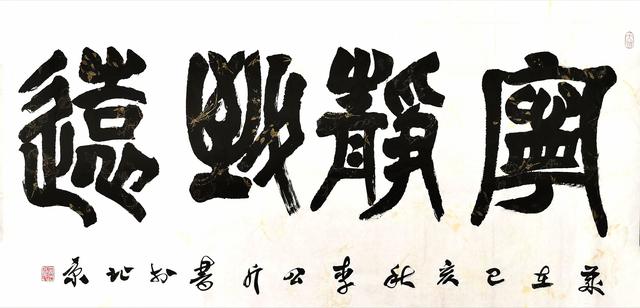 寧靜致遠
歲在己亥秋李公書於北京